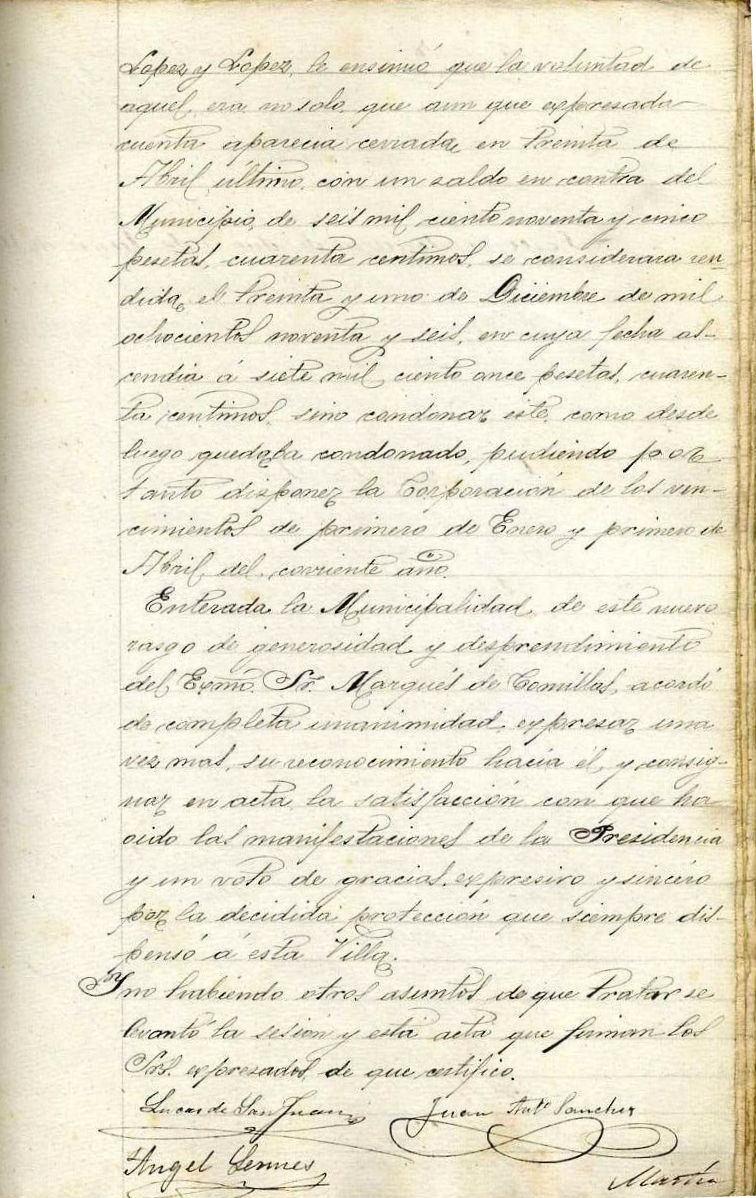 Lopez y Lopez, le ensinuó que la voluntad de
aquel, era no solo, que aun que expresada
cuenta aparecia cerrada, en treinta de
Abril último, con un saldo en contra del
Municipio, de seis mil ciento noventa y cinco
pesetas, cuarenta centimos, se considerara ren-
dida, el treinta y uno de Diciembre de mil
ochocientos noventa y seis, en cuya fecha as-
cendia á siete mil ciento once pesetas, cuaren-
ta centimos, sino condonar este, como desde
luego quedaba condonado, pudiendo por
tanto disponer la Corporación de los ven-
cimientos de primero de Enero y primero de
Abril, del corriente año.
Enterada la Municipalidad, de este nuevo
rasgo de generosidad y desprendimiento
del Exmo. Sr. Marqués de Comillas, acordó
de completa unanimidad, expresar una
vez mas, su reconocimiento hacia él, y consig-
nar en acta, la satisfacción con que ha
oido las manifestaciones de la Presidencia
y un voto de gracias, expresivo y sincero
por la decidida protección que siempre dis-
pensó á esta Villa.
Y no habiendo otros asuntos de que tratar se
levantó la sesión y esta acta que firman los
Srs. expresados, de que certifico.
Lucas de San Juan Juan Anto Sanchez
Angel